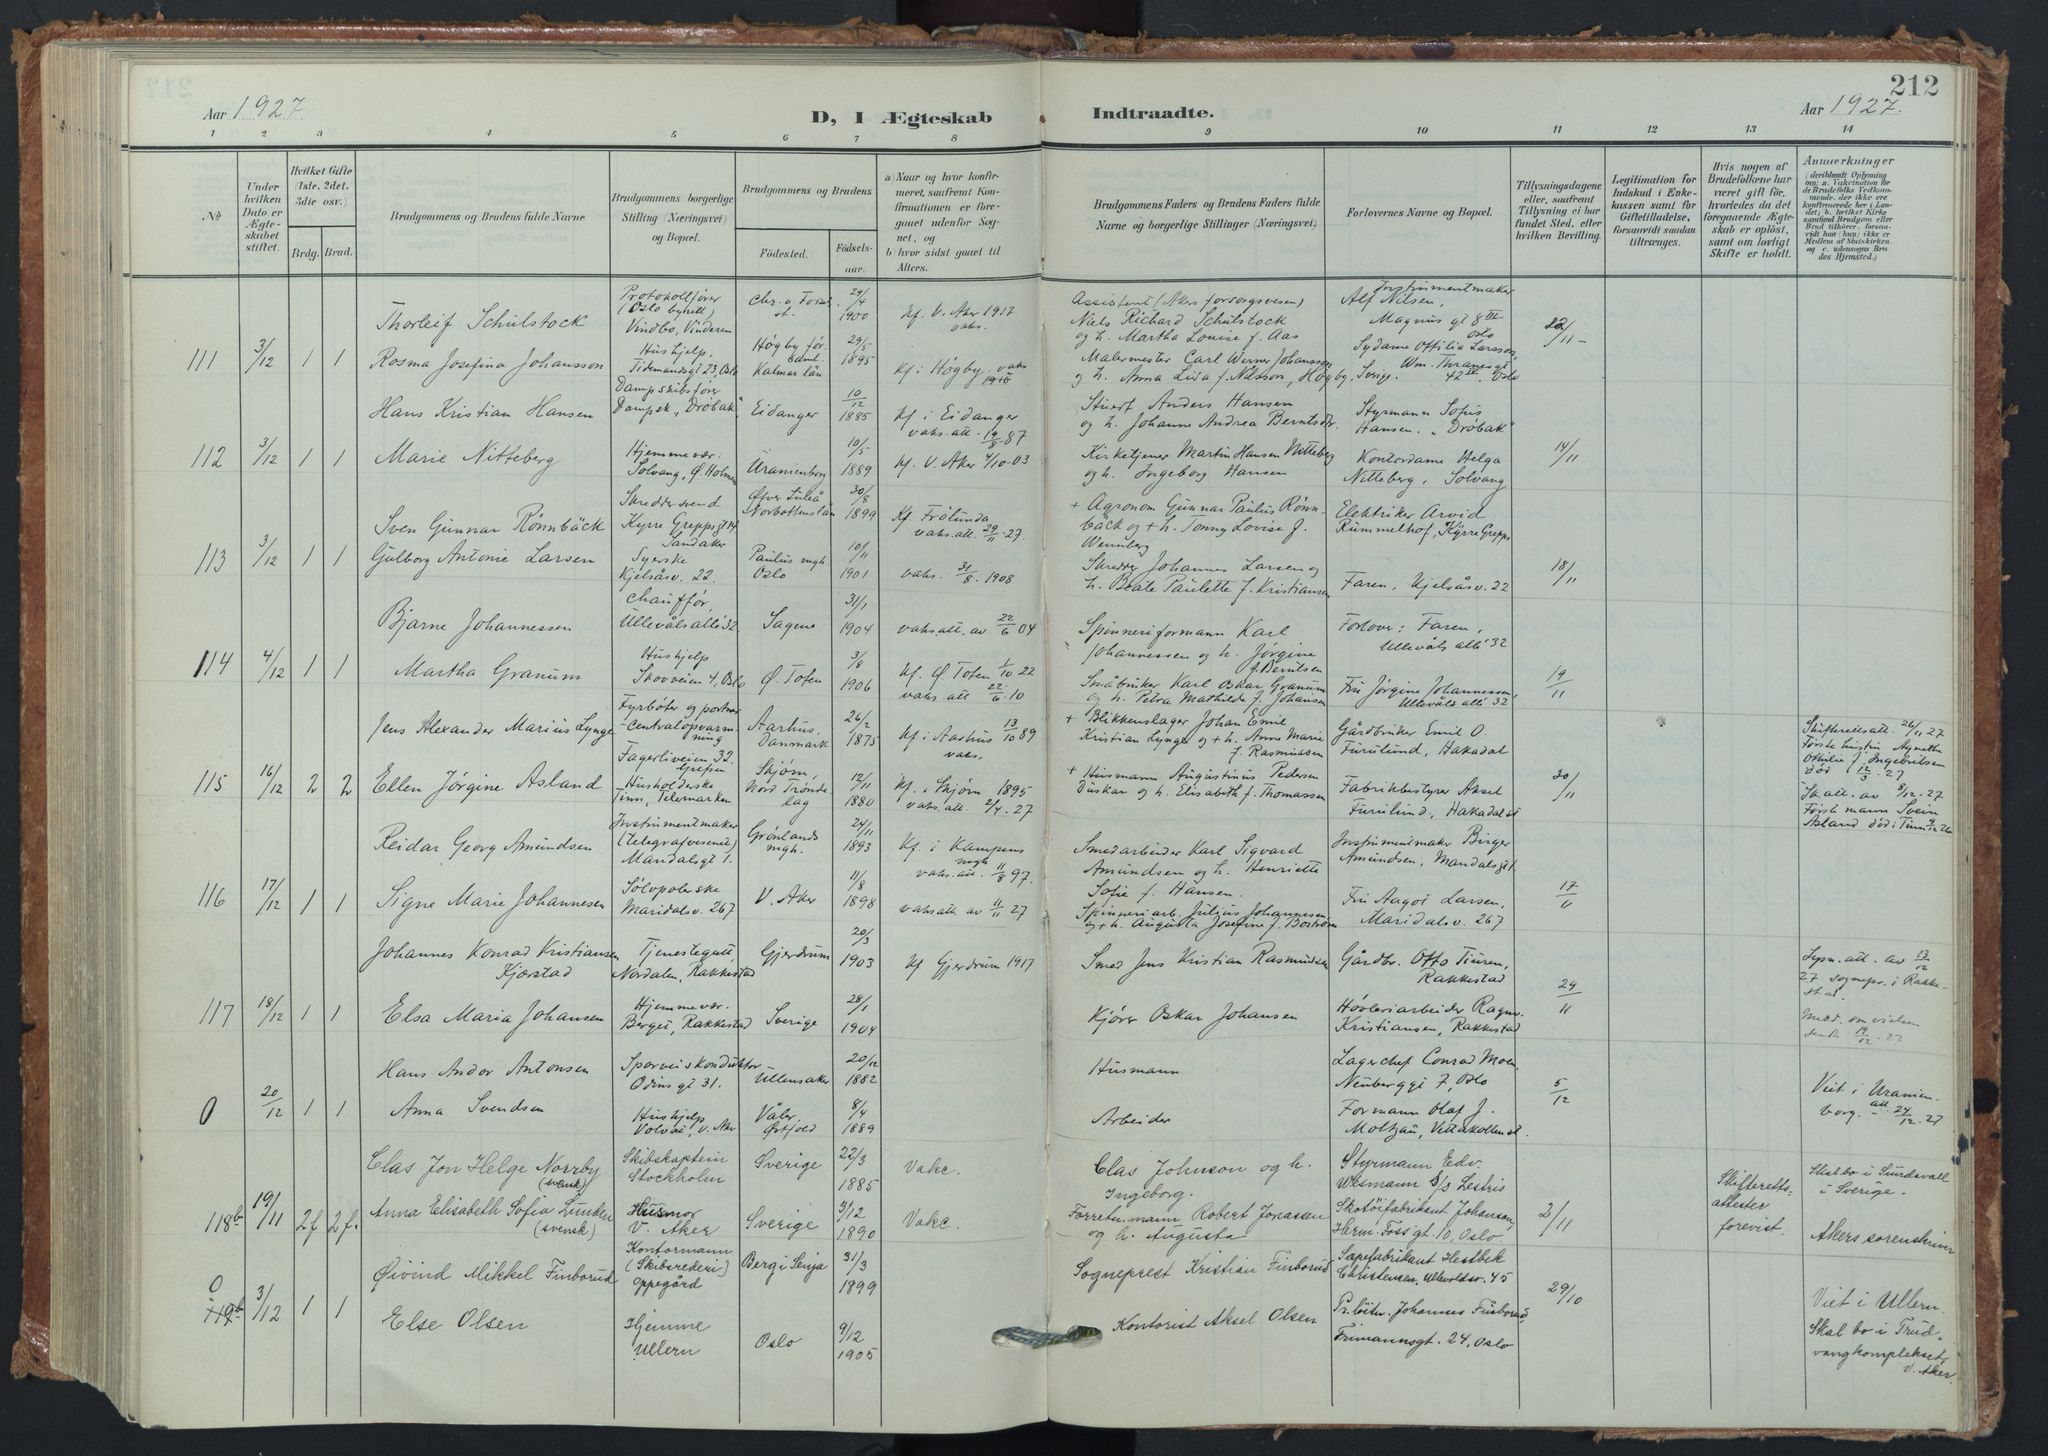 212
Aar 1927.
D, I Ægteskab
Indtraadte.
Aar 1927.
1 2 3 4 5 6 7 8 9 10 11 12 13 14
No
Under hvilken Dato er Ægteskabet stiftet.
Hvilket Gifte (1ste, 2det, 3die osv.)
Brdg. Brud.
Brudgommens og Brudens fulde Navne
Brudgommens borgerlige Stilling (Næringsvei) og Bopæl.
Brudgommens og Brudens
Födested.
Födsels-aar.
a) Naar og hvor konfirmeret, saafremt Konfirmationen er foregaaet udenfor Sognet, og
b) hvor sidst gaaet til Alters.
Brudgommens Faders og Brudens Faders fulde Navne og borgerlige Stillinger (Næringsvei)
Forlovernes Navne og Bopæl.
Tillysningsdagene eller, saafremt Tillysning ei har fundet Sted, efter hvilken Bevilling.
Legitimation for Indskud i Enkekassen samt for Giftetilladelse, forsaavidt saadan tiltrænges.
Hvis nogen af Brudefolkene har været gift för, hvorledes da det foregaaende Ægteskab er oplöst, samt om lovligt Skifte er holdt.
Anmærkninger
(deriblandt Oplysning om: a. Vakcination for de Brudefolks Vedkommende, der ikke ere konfirmerede her i Landet; b. hvilket Kirkesamfund Brudgom eller Brud tilhörer, forsaavidt han (hun) ikke er Medlem af Statskirken, og c. udensogns Brudes Hjemsted.)
Thorleif Schulstock
Protokollfører (Oslo byrett) Vindbo, Vinderen
Chr.a Føds. st.
29/4 1900
Kf. V. Aker 1917 vaks.
Assistent (Akers forsorgsvesen) Niels Richard Schulstock og h. Martha Louise f. Aas
Instrumentmaker Alf Nilsen, Magnus gt 8 III Oslo
22/11 -
111 3/12 1 1
Rosma Josefina Johansson
Hushjelp, Tidemandsgt 23, Oslo
Högby församl. Kalmar län
29/5 1895
Kf i Högby. vaks 1910
Malermester Carl Werner Johansson og h. Anna Lisa f. Nilsson, Högby, Sverige.
Sydame Ottilia Larsson, Wm. Thranesgt 42 IV, Oslo
Hans Kristian Hansen
Dampskibsfører Dampsk. „Drøbak"
Eidanger
10/12 1885
Kf i Eidanger vaks. att. 19/8-87
Stuert Anders Hansen og h. Johanne Andrea Berntsdtr.
Styrmann Sofus Hansen. „Drøbak"
112 3/12 1 1
Marie Nitteberg
Hjemmevær: Solvang, Ø. Holmen
Uranienborg
10/5 1889
Kf. V. Aker 4/10-03
Kirketjener Martin Hansen Nitteberg og h. Ingeborg Hansen
Kontordame Helga Nitteberg, Solvang
14/11
Sven Gunnar Rönnbäck
Skreddersvend Kyrre Greppsgt 14 Sandaker
Öfver Luleå Norbottenslän
30/8 1899
Kf. Frölunda vaks. att. 29/11-27.
+ Agronom Gunnar Paulus Rönnbäck og + h. Jonny Lovise f. Wennberg
Elektriker Arvid Rummelhof, Kyrre Grepps
113 3/12 1 1
Gulborg Antonie Larsen
Syerske Kjelsåsv. 22.
Paulus mgh. Oslo
10/11 1901
vaks. 31/8. 1908
Skredder Johannes Larsen og h. Beate Paulette f. Kristiansen
Faren, Kjelsåsv. 22
18/11
Bjarne Johannessen
Chauffør, Ullevåls allè 32
Sagene
31/1 1904
vaks att. av 22/6 04
Spinneriformann Karl Johannessen og h. Jørgine f. Berntsen
Forlover: Faren, Ullevåls allè 32
114 4/12 1 1
Martha Granum
Hushjelp Skovveien 4, Oslo
Ø. Toten
3/8 1906
Kf. Ø Toten 1/10 22 vaks. att 22/6 10
Småbruker Karl Oskar Granum og h. Petra Mathilde f. Johansen
Fru Jørgine Johannessen, Ullevåls allè 32
19/11
Jens Alexander Marius Lynge
Fyrbøter og portner - centralopvarmning Fagerliveien 32. Grefsen
Aarhus, Danmark
26/2 1875
Kf. i Aarhus 13/10 89 vaks.
+ Blikkenslager Johan Emil Kristian Lynge og + h. Anne Marie f. Rasmussen
Gårdbruker Emil O. Furulund, Hakadal
Skifterettsatt. 26/11-27 Første hustru Agnethe Othilie f. Ingebretsen död 12/3-27
115 16/12 2 2
Ellen Jörgine Asland
Husholderske Tinn, Telemarken
Skjørn, Nord Trøndelag
12/11 1880
Kf. i Skjørn 1895 vaks. att. 2/4-27
+ Husmann Augustinus Pedersen Duskar og h. Elisabeth f. Thomassen
Fabrikbestyrer Aksel Furulund, Hakadal st
30/11
Sk. att. av 8/12-27 Første mann Svein Asland död i Tinn 9/12 26
Reidar Georg Amundsen
Instrumentmaker (telegrafvesenet) Maridalsgt 1.
Grønlands mgh.
24/11 1893
Kf. i Kampens mgh vaks. att. 11/8 97.
Smedarbeider Karl Sigvard Amundsen og h. Henriette Sofie f. Hansen.
Instrumentmaker Birger Amundsen, Mandalsgt 1.
116 17/12 1 1
Signe Marie Johannesen
Sølvpolerske Maridalsv. 267
V. Aker
11/8 1898
vaks att. av 11/11 27
Spinneriarb. Julius Johannesen og + h. Augusta Josefine f. Boström
Fru Aagot Larsen, Maridalsv. 267
17/11
Johannes Konrad Kristiansen Kjærstad
Tjenestegutt, Nordalen, Rakkestad
Gjerdrum
20/3 1903
Kf Gjerdrum 1917
Smed Jens Kristian Rasmussen
Gårdbr. Otto Turen, Rakkestad
Lysn. att. av 13/12 27 sognepr. i Rakkestad.
117 18/12 1 1
Elsa Maria Johansen
Hjemmevær. Berget, Rakkestad
Sverige
28/1 1904
Kjører Oskar Johansen
Høvleriarbeider Ragnv. Kristiansen, Rakkestad
29/11
Med. om vielsen sendt 19/12-27
Hans Andor Antonsen
Sporveiskonduktør Odins gt 31.
Ullensaker
20/12 1882
Husmann
Lagerchef Conrad Moen Neuberggt 7, Oslo
0 20/12 1 1
Anna Svendsen
Hushjelp Volvat, V. Aker
Våler Østfold
8/4 1889
Arbeider
Formann Olaf J. Moltzau, Vettakollen st.
5/12
Viet i Uranienborg. att 24/12-27
Clas Jon Helge Norrby (svensk)
Skibskaptein Stockholm
Sverige
22/3 1885
Vakc.
Clas Johnson og h. Ingeborg.
Styrmann Edv. Wesmann S/S Lestris
Skal bo i Sundsvall i Sverige.
118b 19/11 2 f 2 f.
Anna Elisabeth Sofia Lunden (svensk)
Husmor V. Aker
Sverige
3/12 1890
Vakc.
Forretn. mann Robert Jonassen og h. Augusta
Skotöifabrikant Johanson, Herm. Foss gt. 10, Oslo.
2/11
Skifteretts-attester forevist.
Akers sorenskriver
Øivind Mikkel Finborud
Kontormann (Skibsrederi) Oppegård
Berg i Senja
31/3 1899
Sogneprest Kristian Finborud
Sæpefabrikant Hestbek Christensen, Ullevoldsv. 45
0 119b 3/12 1 1
Else Olsen
Hjemme Ullern
Oslo
9/12 1905
Kontorist Aksel Olsen
Pr.løitn. Johannes Finborud, Frimannsgt. 24, Oslo
29/10
Viet i Ullern. Skal bo i Trudvangkomplekset, V. Aker.